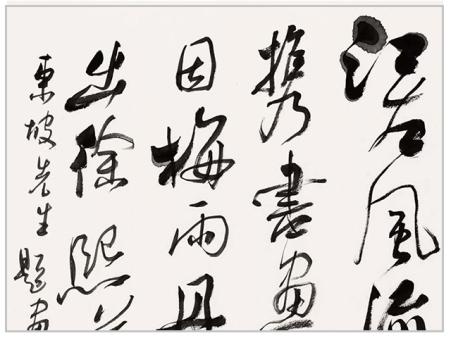 江左風流
携書畫
因梅雨丹
出徐熙
東坡先生題畫